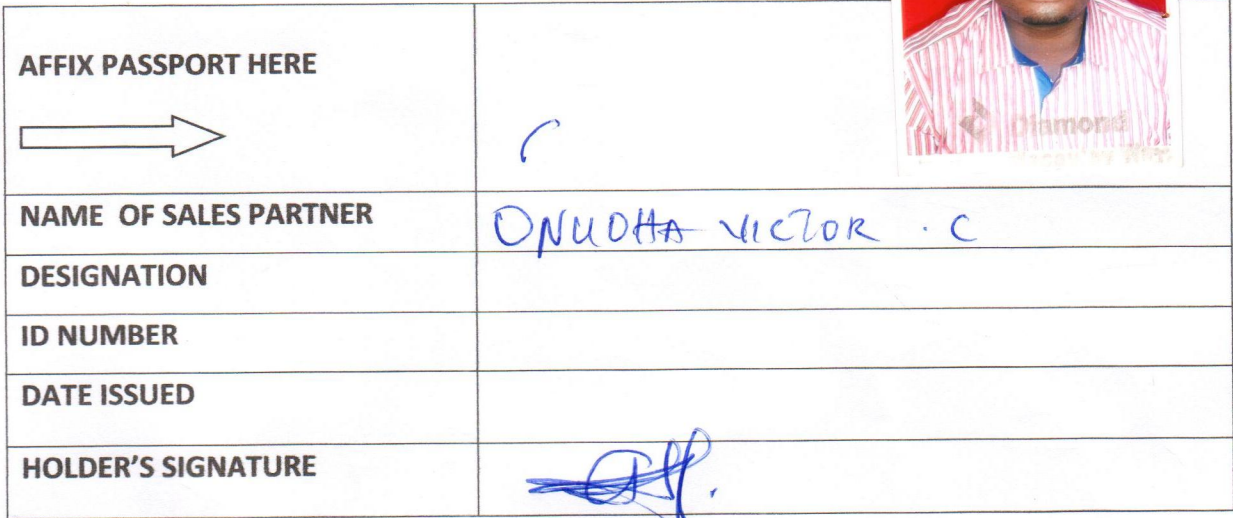 AFFIX PASSPORT HERE
Diamond
NAME OF SALES PARTNER
ONUOHA VICTOR . C
DESIGNATION
ID NUMBER
DATE ISSUED
HOLDER'S SIGNATURE